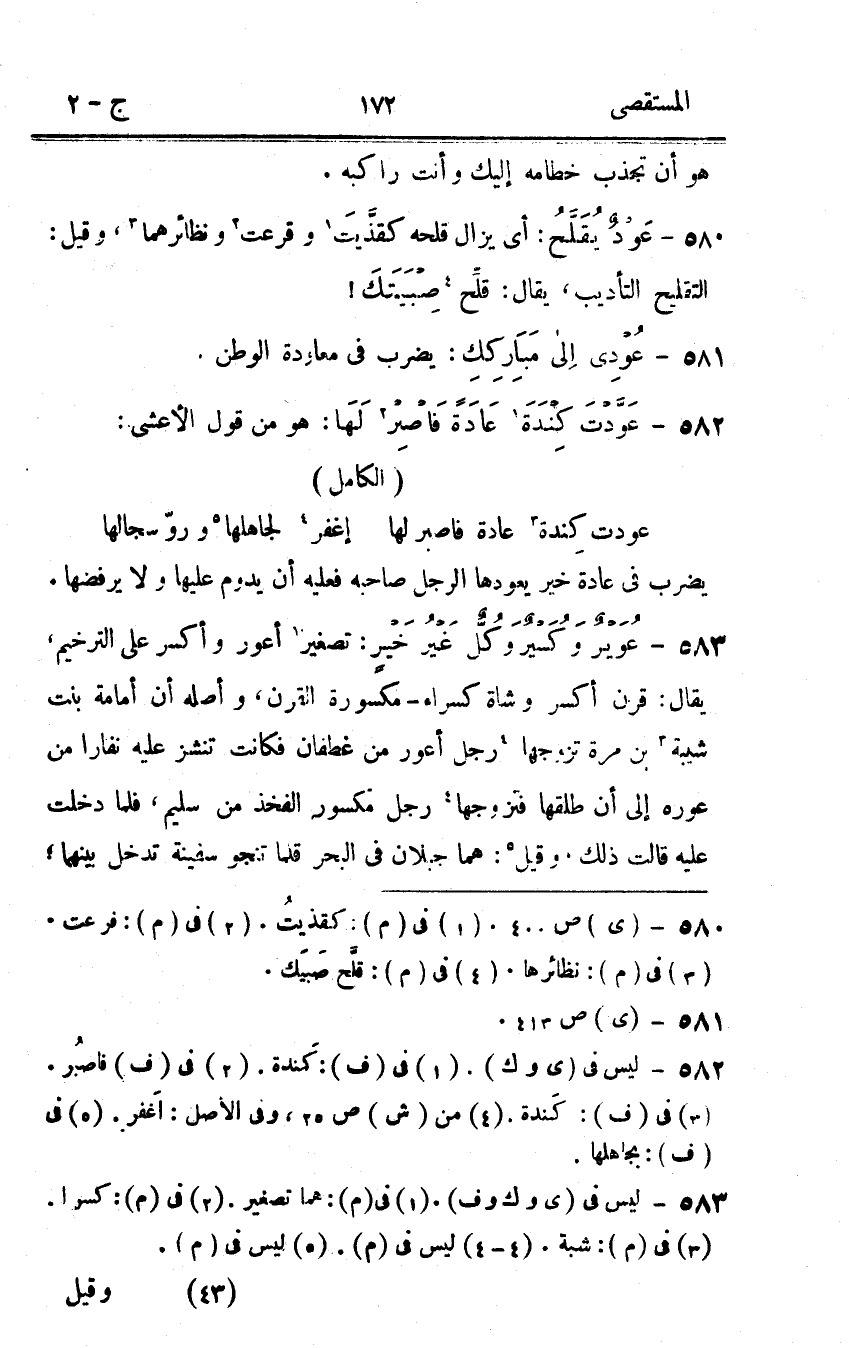 المستقصى ١٧٢ ج - ٢
هو أن تجذب خطامه إليك و أنت راكبه .
٥٨٠ - عَوْدٌ يُقَلَّحُ : أى يزال قلحه كقذَّيتَ١ و قرعت٢ و نظائرهما٣ ، و قيل :
التقليح التأديب ، يقال : قلِّح٤ صِبْيَتَكَ !
٥٨١ - عُوْدِى إِلىٰ مَبَارِكِكِ : يضرب فى معاودة الوطن .
٥٨٢ - عَوَّدْتَ كِنْدَةَ١ عَادَةً فَاصْبِرْ٢ لَهَا : هو من قول الأعشى :
( الكامل )
عودت كِندة٣ عادة فاصبر لها إغفر٤ لجاهلها٥ و روّ سجالها
يضرب فى عادة خير يعودها الرجل صاحبه فعليه أن يدوم عليها و لا يرفضها .
٥٨٣ - عُوَيْرٌ وَ كُسَيْرٌ وَ كُلٌّ غَيْرُ خَيْرٍ : تصغير١ أعور و أكسر على الترخيم ،
يقال : قرن أكسر و شاة كسراء - مكسورة القرن ، و أصله أن أمامة بنت
شيبة٣ بن مرة تزوجها ٤رجل أعور من غطفان فكانت تنشز عليه نفارا من
عوره إلى أن طلقها فتزوجها٤ رجل مكسور الفخذ من سليم ، فلما دخلت
عليه قالت ذلك . و قيل٥ : هما جبلان فى البحر قلما تنجو سفينة تدخل بينهما ؛
٥٨٠ - ( ى ) ص ٤٠٠ . ( ١ ) فى ( م ) : كقذيتُ . ( ٢ ) فى ( م ) : فرعت .
( ٣ ) فى ( م ) : نظائرها . ( ٤ ) فى ( م ) : قلَّح صَبيَك .
٥٨١ - ( ى ) ص ٤١٣ .
٥٨٢ - ليس فى ( ى و ك ) . ( ١ ) فى ( ف ) : كَندة . ( ٢ ) فى ( ف ) فاصبُر .
( ٣ ) فى ( ف ) : كَندة . ( ٤ ) من ( ش ) ص ٢٥ ، و فى الأصل : أغفر . ( ٥ ) فى
( ف ) : بجاهلها .
٥٨٣ - ليس فى ( ى و ك و ف ) . ( ١ ) فى ( م ) : هما تصغير . ( ٢ ) فى ( م ) : كسرا .
( ٣ ) فى ( م ) : شبة . ( ٤ - ٤ ) ليس فى ( م ) . ( ٥ ) ليس فى ( م ) .
( ٤٣ ) و قيل